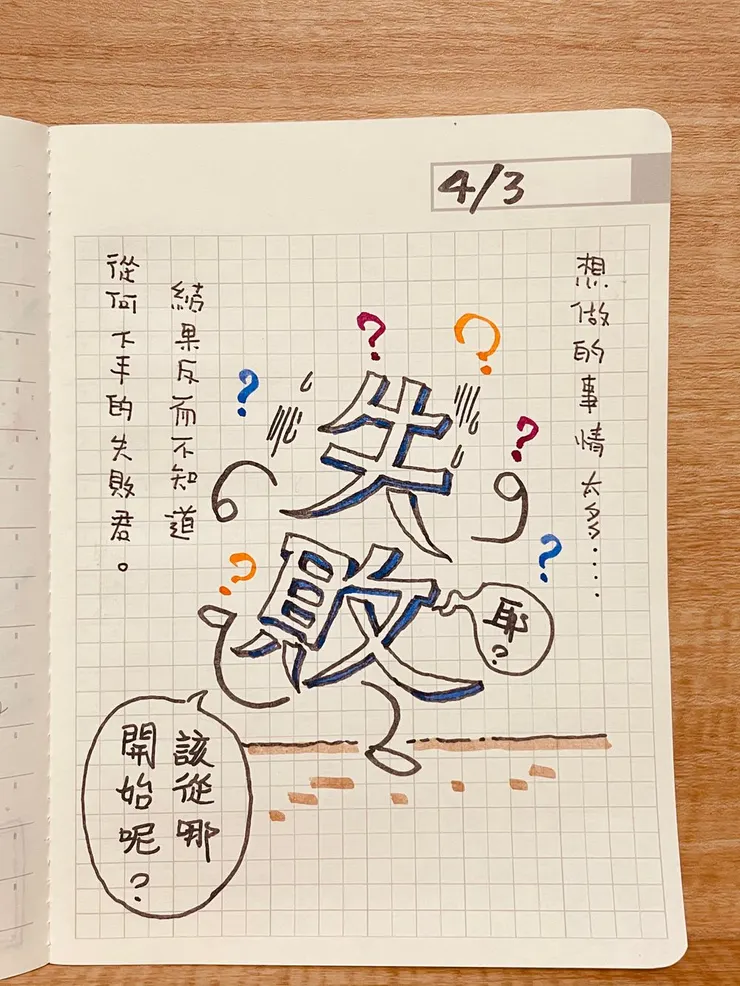 4/3
想做的事情太多....
失敗
耶?
結果反而不知道
從何下手的失敗君。
該從哪
開始呢?